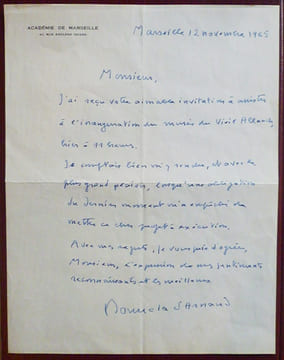 ACADÉMIE DE MARSEILLE
Marseille 12 novembre 1965
Monsieur,
J'ai reçu votre aimable invitation à assister
à l'inauguration du musée du Vieil Allauch,
hier à 11 heures.
Je comptais bien m'y rendre, et avec le
plus grand plaisir, lorsqu'une obligation
du dernier moment m'a empêché de
mettre ce cher projet à exécution.
Avec mes regrets, je vous prie d'agréer,
Monsieur, l'expression de mes sentiments
reconnaissants et les meilleurs